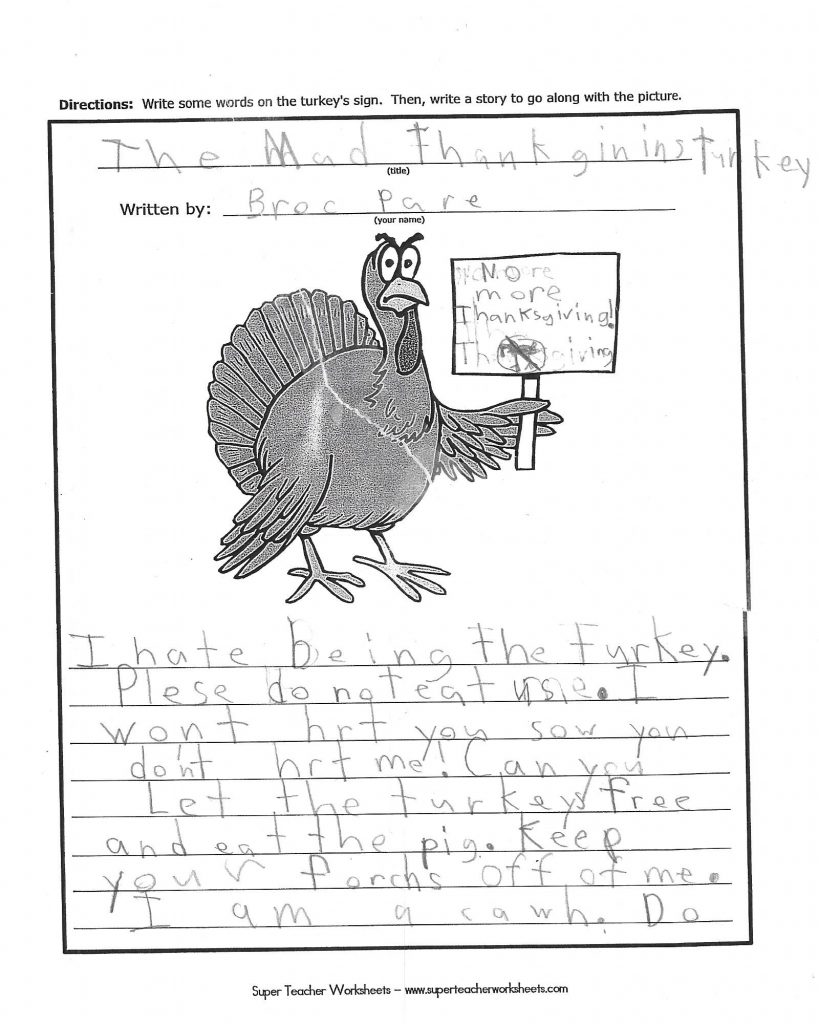 Directions: Write some words on the turkey's sign. Then, write a story to go along with the picture.
The Mad Thankginins Turkey
(title)
Written by: Broc Pare
(your name)
No
more
Thanksgiving!
Thanksgiving
I hate being the turkey.
Plese do not eat us. I
wont hrt you sow you
do'nt hrt me! Can you
Let the turkeys free
and eat the pig. Keep
your forchs off of me.
I am a cawh. Do
Super Teacher Worksheets – www.superteacherworksheets.com